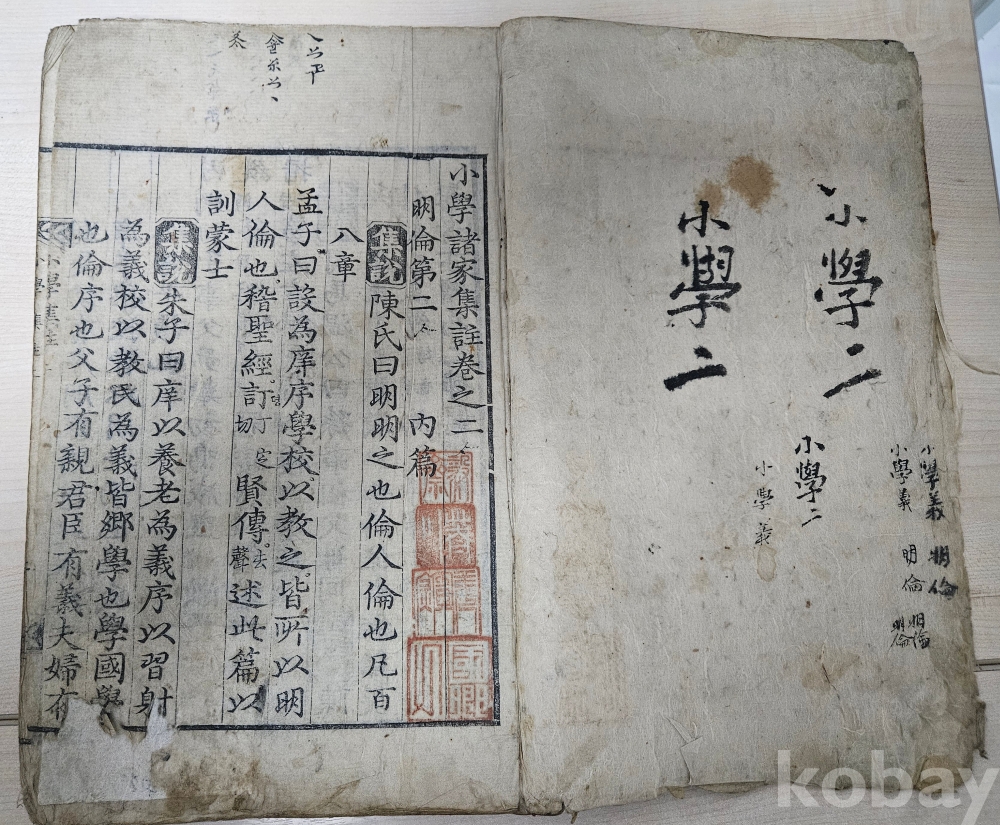 小學義 明倫
小學義 明倫
明倫
小學二
小學二
小學二
小學義
小學諸家集註卷之二
明倫第二 內篇
集註陳氏曰明明之也倫人倫也凡百
八章
孟子曰設為庠序學校以教之皆所以明
人倫也稽聖經訂丁定切賢傳去聲述此篇以
訓蒙士
集註朱子曰庠以養老為義序以習射
為義校以教民為義皆鄉學也學國學
也倫序也父子有親君臣有義夫婦有
小學集註
kobay